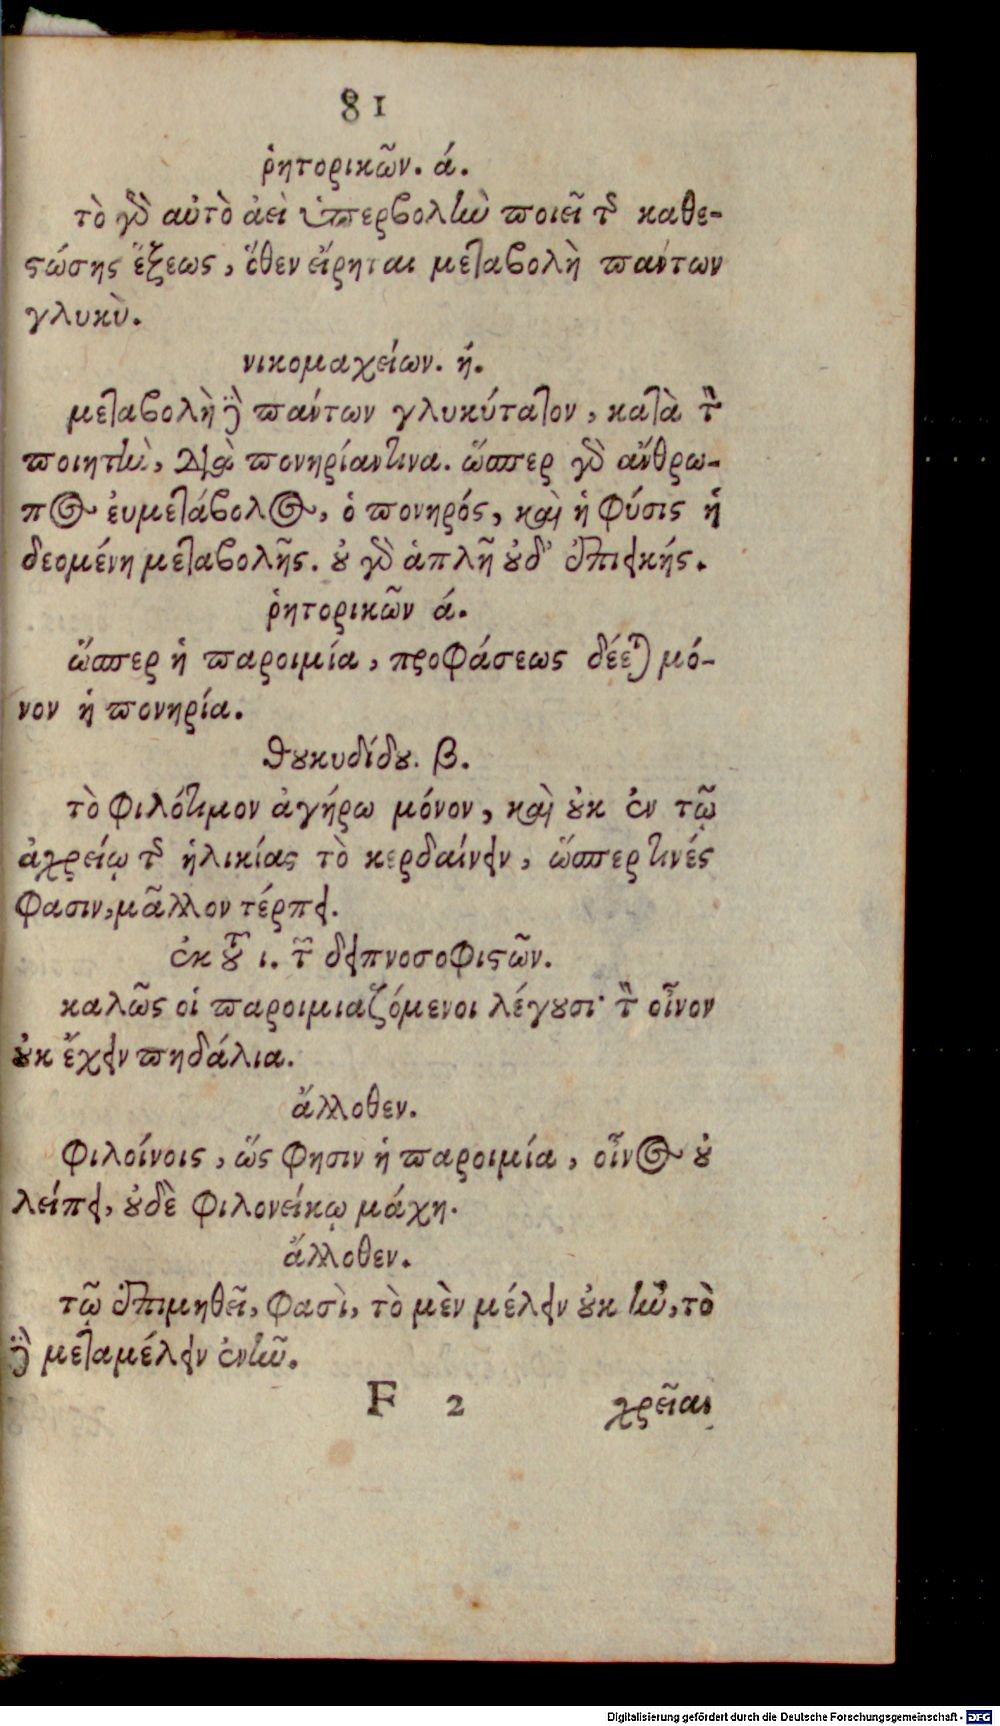 81
ῥητορικῶν. ά.
τὸ γὸ αὐτὸ ἀεὶ ὑπερβολὴν ποιεῖ τῆς καθε-
ςώσης ἕξεως, ὅθεν εἴρηται μεταβολὴ πάντων
γλυκὺ.
νικομαχείων. ή.
μεταβολὴ δὲ πάντων γλυκύτατον, κατὰ τὸν
ποιητὴν, διὰ πονηρίαν τινα. ὥσπερ γὸ ἄνθρω-
πος ἐυμετάβολος, ὁ πονηρός, καὶ ἡ φύσις ἡ
δεομένη μεταβολῆς. ȣ γὸ ἁπλῆ ȣδ᾽ ἐπιεικής.
ῥητορικῶν ά.
ὥσπερ ἡ παροιμία, προφάσεως δέεται μό-
νον ἡ πονηρία.
Θȣκυδίδȣ. β.
τὸ φιλότιμον ἀγήρω μόνον, καὶ ȣκ ἐν τῷ
ἀχρείῳ τῆς ἡλικίας τὸ κερδαίνειν, ὥσπερ τινές
φασιν, μᾶλλον τέρπει.
ἐκ τȣ ι. τῶν δειπνοσοφιςῶν.
καλῶς οἱ παροιμιαζόμενοι λέγȣσι· τὸν οἶνον
ȣκ ἔχειν πηδάλια.
ἄλλοθεν.
φιλοίνοις, ὥς φησιν ἡ παροιμία, οἶνος ȣ
λείπει, ȣδὲ φιλονείκῳ μάχη.
ἄλλοθεν.
τῷ ἐπιμηθεῖ, φασὶ, τὸ μὲν μέλειν ȣκ ἦν, τὸ
δὲ μεταμέλειν ἐνῆν.
F 2 χρεῖαι
Digitalisierung gefördert durch die Deutsche Forschungsgemeinschaft - DFG